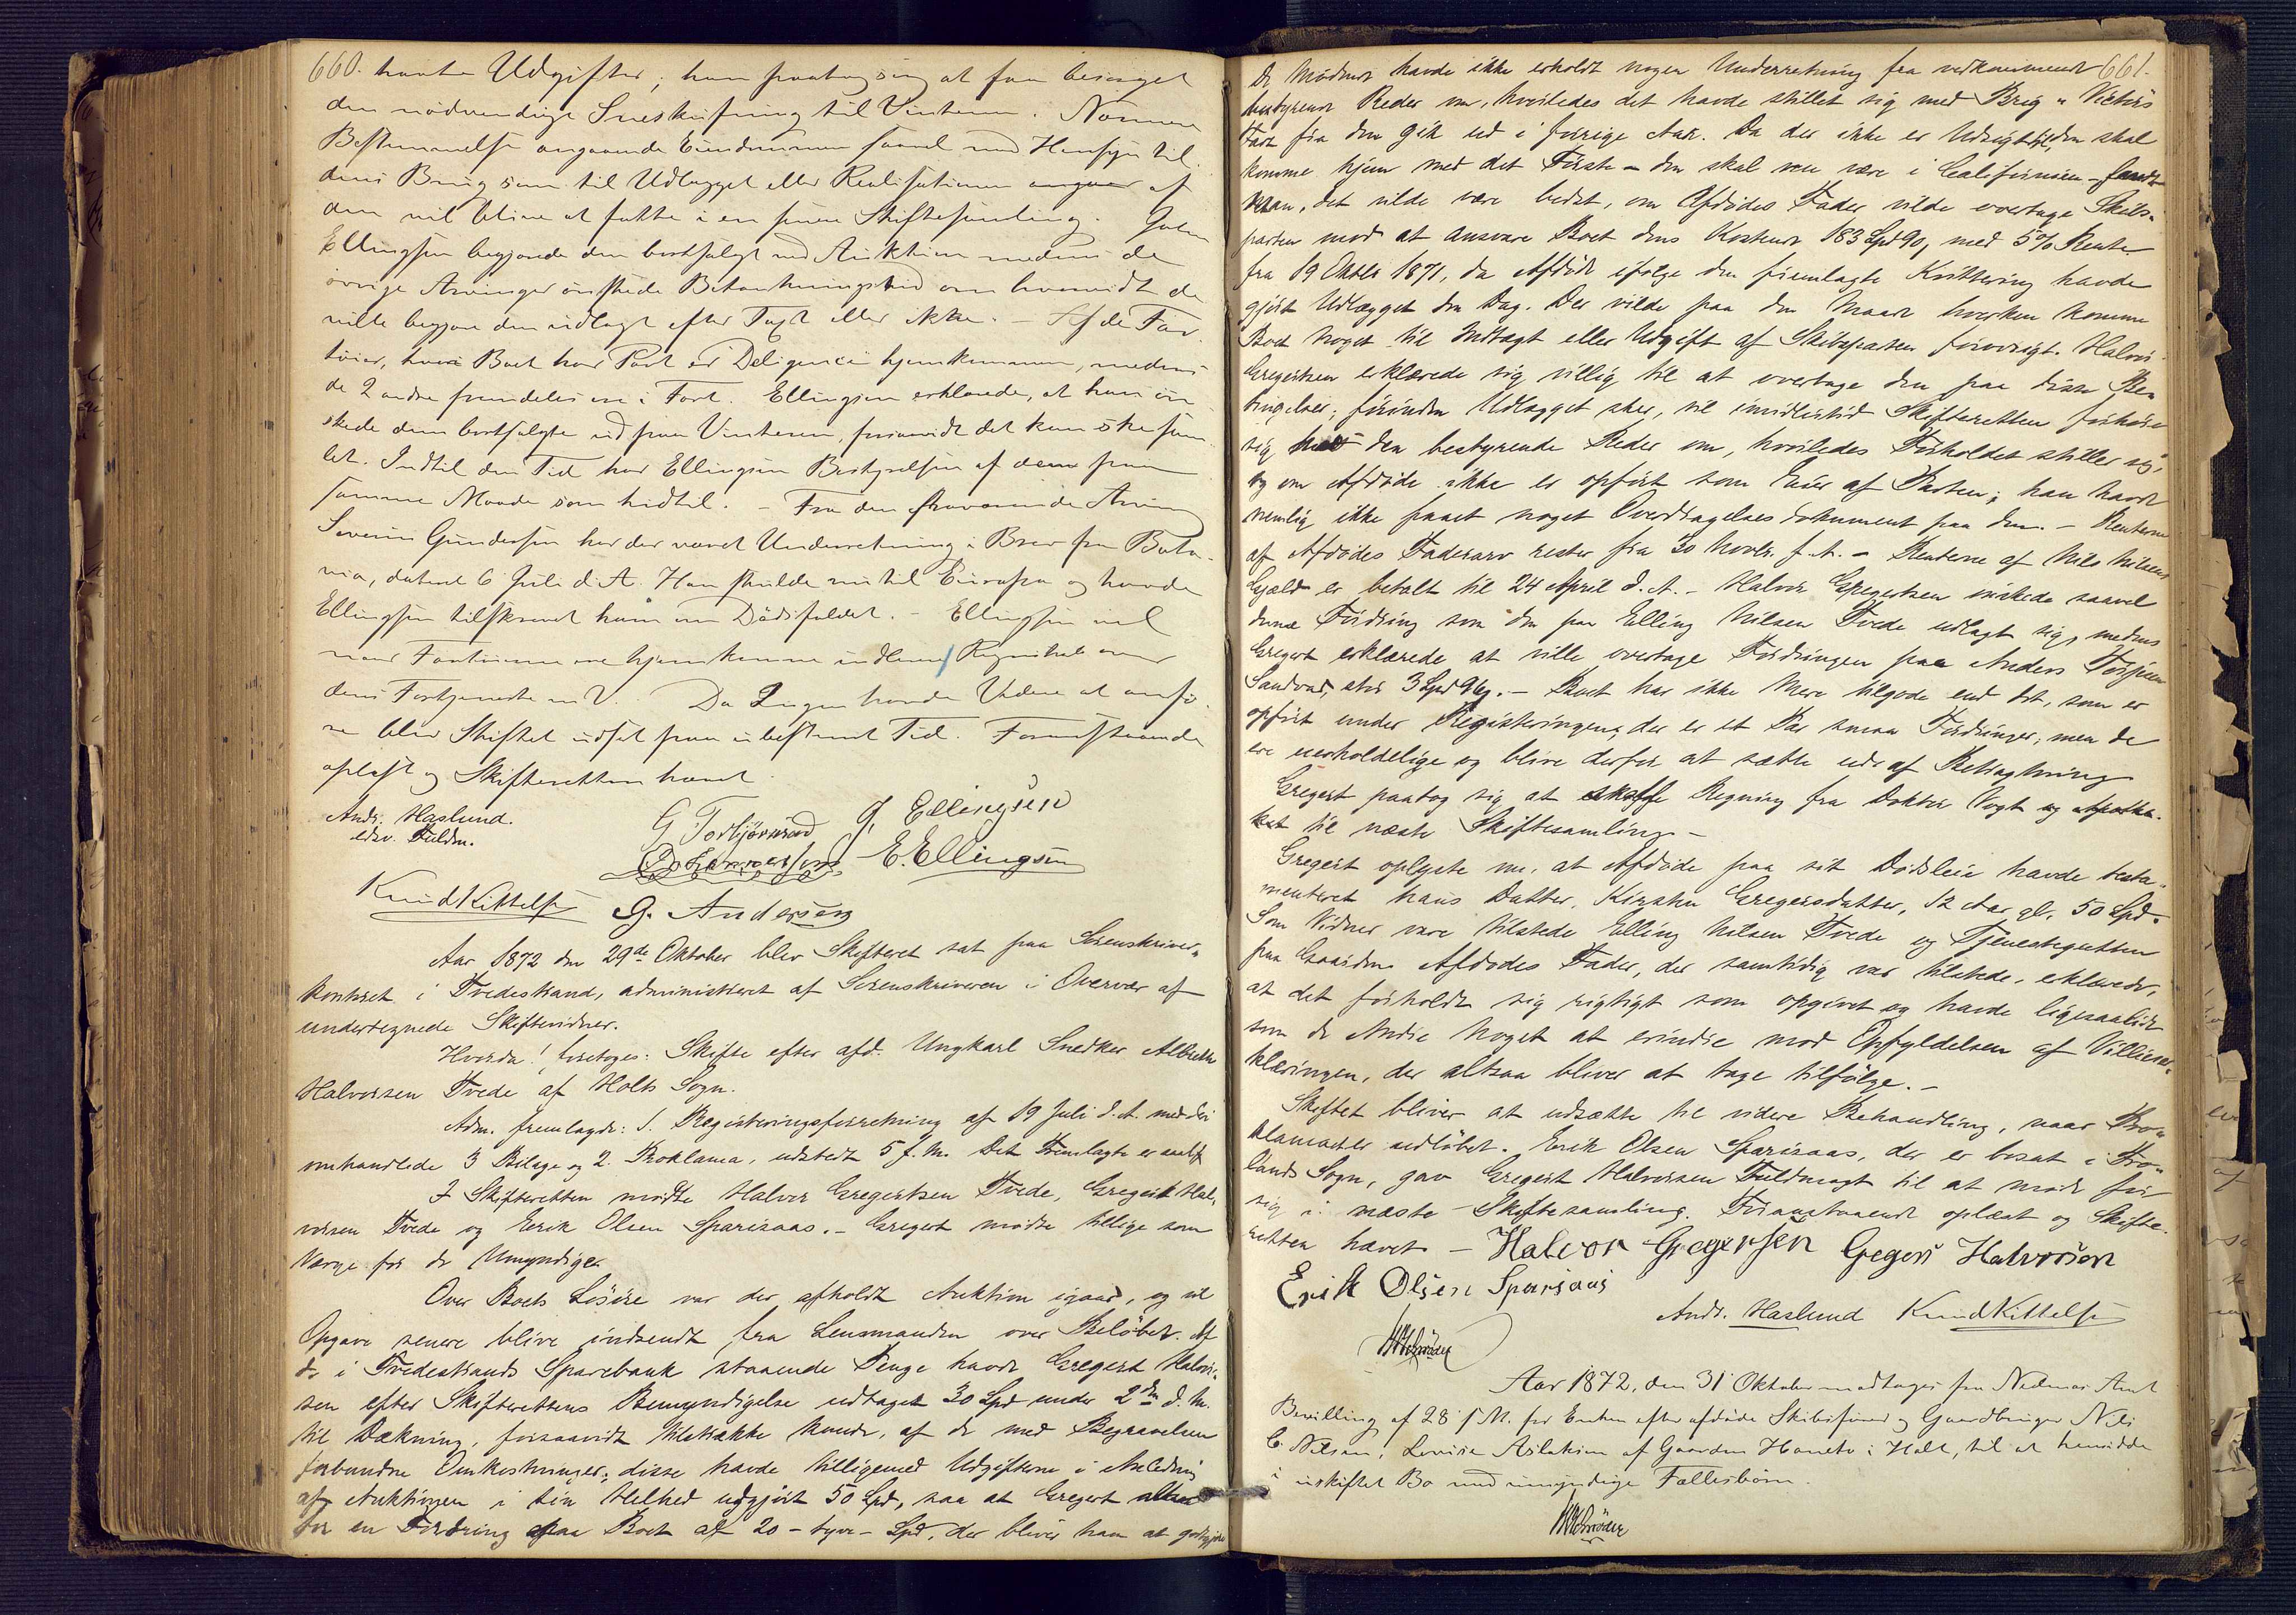 660. havte Udgifter; han paatog sig at faa besørget
den nødvendige Indskrivning til Vinteren. Nærmere
Bestemmelse angaaende Eiendommen saavel med Hensyn til
dens Brug som til Udlægget eller Realisationen af
den vil blive at fatte i en senere Skiftesamling.
Ellingsen begjærede den bortsolgt ved Auktion medens de
øvrige Arvinger ønskede Betænkningstid om hvorvidt de
ville begjære den udlagt efter Taxt eller ikke. – Af de Far
tøier, hvori Boet har Part er Deligence hjemkommen, medens
de 2 andre fremdeles ere i Fart. Ellingsen erklærede, at han øn
skede dem bortsolgte ud paa Vinteren, forsaavidt det kan ske sam
let. Indtil den Tid har Ellingsen Bestyrelsen af dem paa
samme Maade som hidtil. – Fra den fraværende Arving
Severin Gundersen har der været Underretning i Brev fra Bata
via, dateret 6 Juli d. A. Han skulde nu til Europa og havde
Ellingsen tilskrevet ham om Dødsfaldet. – Ellingsen vil
naar Fartøierne ere hjemkomne indlevere Regnskab over
dens Fortjeneste m. V. Da Ingen havde Videre at anfø
re blev Skiftet udsat paa ubestemt Tid. Foranstaaende
oplæst og Skifteretten hævet.
Andr. Haslund. G Torbjørnsen J. Ellingsen
edsv. Fuldm. E. Ellingsen
Knud Kittelsen G. Andersen
Aar 1872 den 29de Oktober blev Skifteret sat paa Sorenskriver-
kontoret i Tvedestrand, administreret af Sorenskriveren i Overvær af
undertegnede Skiftevidner.
Hvorda! foretoges: Skifte efter afd. Ungkarl Snedker Albreth
Halvorsen Tvede af Holts Sogn.
Adm. fremlagde: 1. Registreringsforretning af 19 Juli d. A. med dri
omhandlede 3 Bilage og 2. Proklama, udstedt 5 f. M. Det Fremlagte er saalydende
I Skifteretten mødte Halvor Gregertsen Tvede, Gregert Hal-
vorsen Tvede og Erik Olsen Sparsaas. – Gregert mødte tillige som
Værge for de Umyndige.
Over Boets Løsøre var der afholdt Auktion igaar, og vil
Opgave senere blive indsendt fra Lensmanden over Beløbet. Af
de i Tvedestrands Sparebank staaende Penge havde Gregert Halvor-
sen efter Skifterettens Bemyndigelse udtaget 30 Spd under 2den d. M.
til Dækning, forsaavidt tilstrække kunde, af de med Begravelsen
forbundne Omkostninger; disse havde tilligemed Udgifterne i Anledning
af Auktionen i sin Helhed udgjort 50 Spd, saa at Gregert altsaa
har en Fordring paa Boet af 20 – tyve – Spd. der bliver ham at godtgjøre
661.
De Mødende havde ikke erholdt nogen Underretning fra vedkommende
bestyrende Reder om, hvorledes det havde stillet sig med Brig "Victors
Fart fra den gik ud i forrige Aar. Da der ikke er Udsigt til, den skal
komme hjem med det Første – den skal nu være i Californien – fandt
man, det vilde være bedst, om Afdødes Fader vilde overtage Skibs-
parten mod at ansvare Boet dens Kostende 183 Spd 90, med 5% Rente
fra 19 Oktbr 1871, da Afdøde ifølge den fremlagte Kvittering havde
gjort Udlægget den Dag. Der vilde paa den Maade hverken komme
Boet Noget til Indtægt eller Udgift af Skibsparten forøvrigt. Halvor
Gregertsen erklærede sig villig til at overtage den paa disse Be-
tingelser; førinden Udlægget sker, vil imidlertid Skifteretten forhøre
sig hos den bestyrende Reder om, hvorledes Forholdet stiller sig,
og om Afdøde ikke er opført som Eier af Parten; han havde
nemlig ikke faaet noget Overdragelses Dokument paa den. – Renterne
af Afdødes Faderarv rester fra 30 Novbr. f. A. – Renterne af Nils Nilsens
Gjæld er betalt til 24 April d. A. – Halvor Gregertsen ønskede saavel
denne Fordring som den paa Elling Nilsen Tvede udlagt sig, medens
Gregert erklærede at ville overtage Fordringen paa Anders Torjusen
Sandvad, stor 3 Spd 96 s. – Boet har ikke Mere tilgode end det, som er
opført under Registreringen; der er et Par smaa Fordringer, men de
ere uerholdelige og blive derfor at sætte ud af Betragtning.
Gregert paatog sig at skaffe Regning fra Doktor Vogt og Apothe-
ket til næste Skiftesamling –
Gregert oplyste nu, at Afdøde paa sit Dødsleie havde testa-
menteret hans Datter, Kirsten Gregersdatter, 12 Aar gl, 50 Spd.
Som Vidner vare tilstede Elling Nilsen Tvede og Tjenestegutten
paa Gaarden. Afdødes Fader, der samtidig var tilstede, erklærede,
at det forholdt sig rigtigt som opgivet og havde ligesaalidt
som de Andre Noget at erindre mod Opfyldelsen af Villieser-
klæringen, der altsaa bliver at tage tilfølge. –
Skiftet bliver at udsætte til videre Behandling, naar Pro-
klamaet er udløbet. Erik Olsen Sparsaas, der er bosat i Fro-
lands Sogn, gav Gregert Halvorsen Fuldmagt til at møde for
sig i næste Skiftesamling. Foranstaaende oplæst og Skifte-
retten hævet – Halvor Gregersen Gegert Halvorsen
Erik Olsen Sparsaas
Andr. Haslund Knud Kittelsen
Aar 1872, den 31 Oktober modtages fra Nedenes Amt
Bevilling af 28 s M. for Enken efter afdøde Skibsfører og Gaardbruger Nils
C. Nilsen, Lovise Aslaksen af Gaarden Haneto i Holt, til at hensidde
i uskiftet Bo med umyndige Fællesbørn.